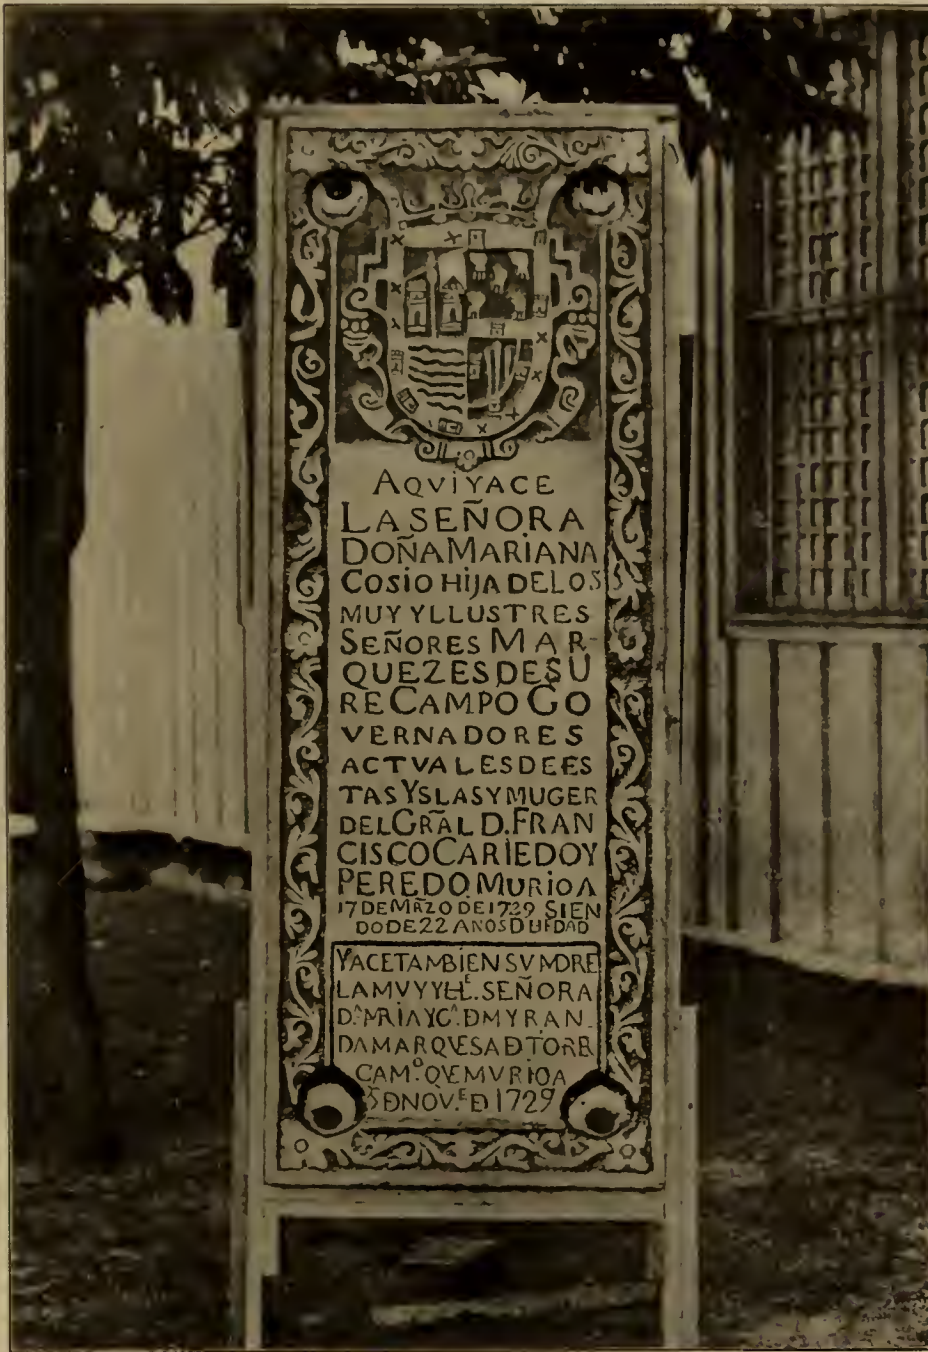 AQVIYACE
LASEÑORA
DOÑAMARIANA
COSIO HIJA DELOS
MUY YLLUSTRES
SEÑORES MAR-
QUEZES DE SU
RE CAMPO GO
VERNADORES
ACTVALES DE ES
TAS YSLAS Y MUGER
DEL GRAL D. FRAN
CISCO CARIEDO Y
PEREDO MURIO A
17 DE MRZO DE 1729 SIEN
DO DE 22 ANOS D UEDAD
YACE TAMBIEN SV MDRE
LA MVY YLLE. SEÑORA
DA MRIA YCA. D MYRAN
DA MARQVESA D TORR
CAMO. QVE MVRIO A
5 D NOV.E D 1729